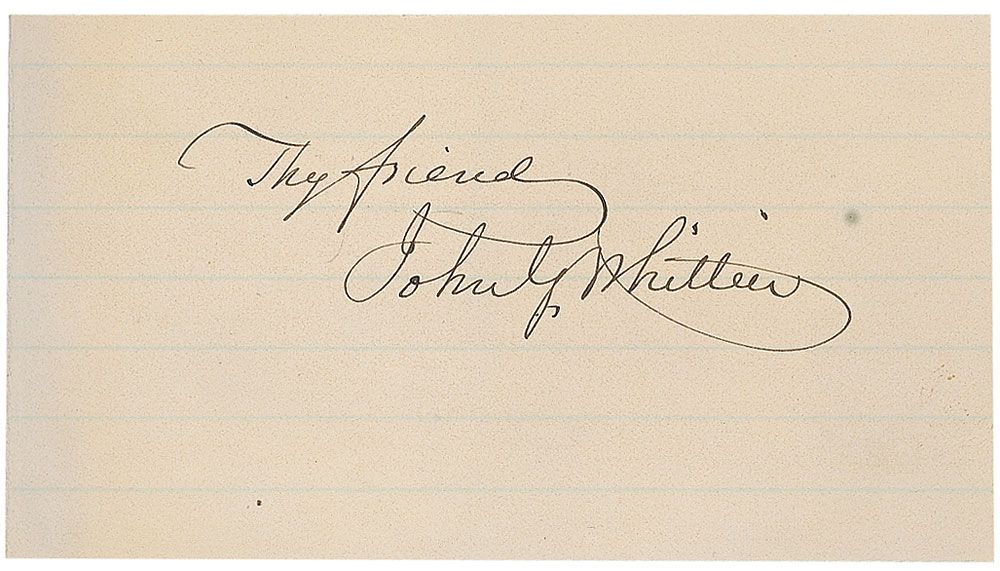 Thy friend
John G Whittier